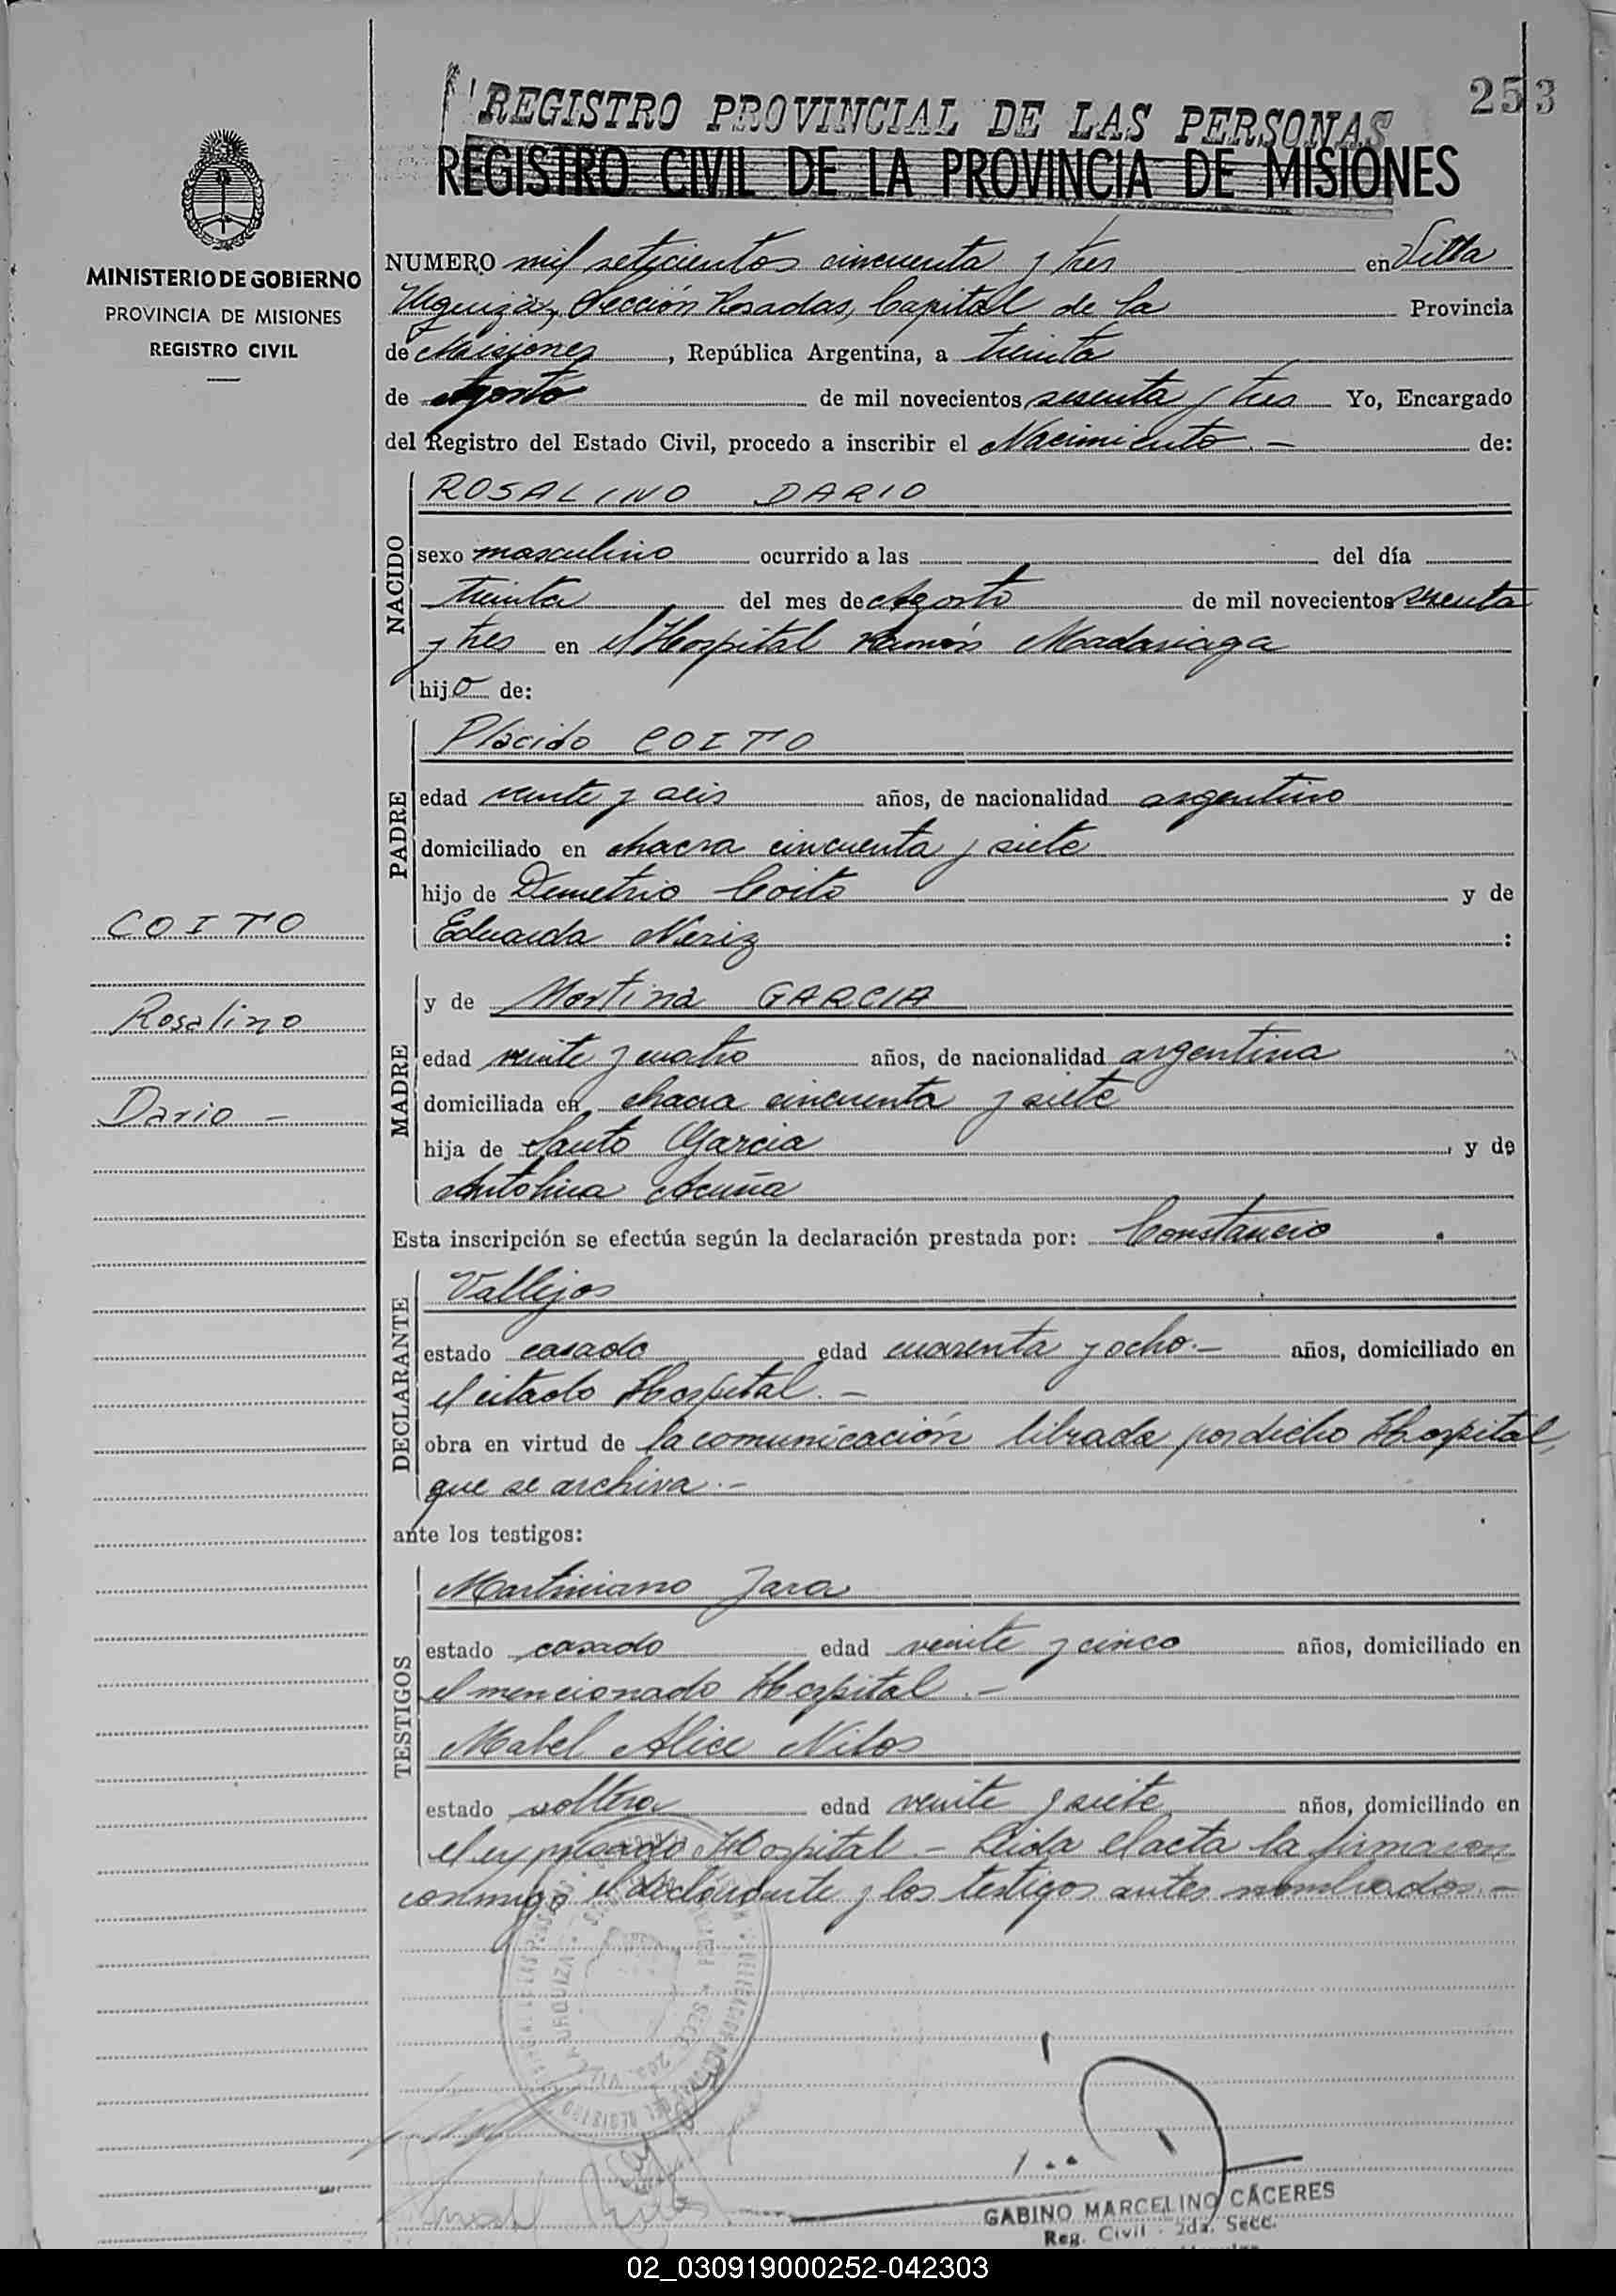 253
REGISTRO PROVINCIAL DE LAS PERSONAS
REGISTRO CIVIL DE LA PROVINCIA DE MISIONES
MINISTERIO DE GOBIERNO
PROVINCIA DE MISIONES
REGISTRO CIVIL
NUMERO mil seticientos cincuenta y tres en Villa
Urquiza, Sección Posadas, Capital de la Provincia
de Misiones, República Argentina, a treinta
de Agosto de mil novecientos sesenta y tres Yo, Encargado
del Registro del Estado Civil, procedo a inscribir el Nacimiento.- de:
NACIDO
ROSALINO DARIO
sexo masculino ocurrido a las del día
treinta del mes de Agosto de mil novecientos sesenta
y tres en el Hospital Ramón Madariaga
hijo de:
PADRE
Plácido COITO
edad veinte y seis años, de nacionalidad argentino
domiciliado en chacra cincuenta y siete
hijo de Demetrio Coito y de
Eduarda Neriz :
COITO
Rosalino
Dario -
MADRE
y de Martina GARCIA
edad veinte y cuatro años, de nacionalidad argentina
domiciliada en chacra cincuenta y siete
hija de Santo Garcia, y de
Antolina Acuña
Esta inscripción se efectúa según la declaración prestada por: Constancio
DECLARANTE
Vallejos
estado casado edad cuarenta y ocho.- años, domiciliado en
el citado Hospital.-
obra en virtud de la comunicación librada por dicho Hospital,
que se archiva.-
ante los testigos:
TESTIGOS
Martiniano Jara
estado casado edad veinte y cinco años, domiciliado en
el mencionado Hospital.-
Mabel Alice Nilos
estado soltera edad veinte y siete años, domiciliado en
el expresado Hospital.- Leida el acta la firma con
conmigo el declarante y los testigos antes nombrados.-
GABINO MARCELINO CÁCERES
Reg. Civil - 2da. Secc.
02_030919000252-042303